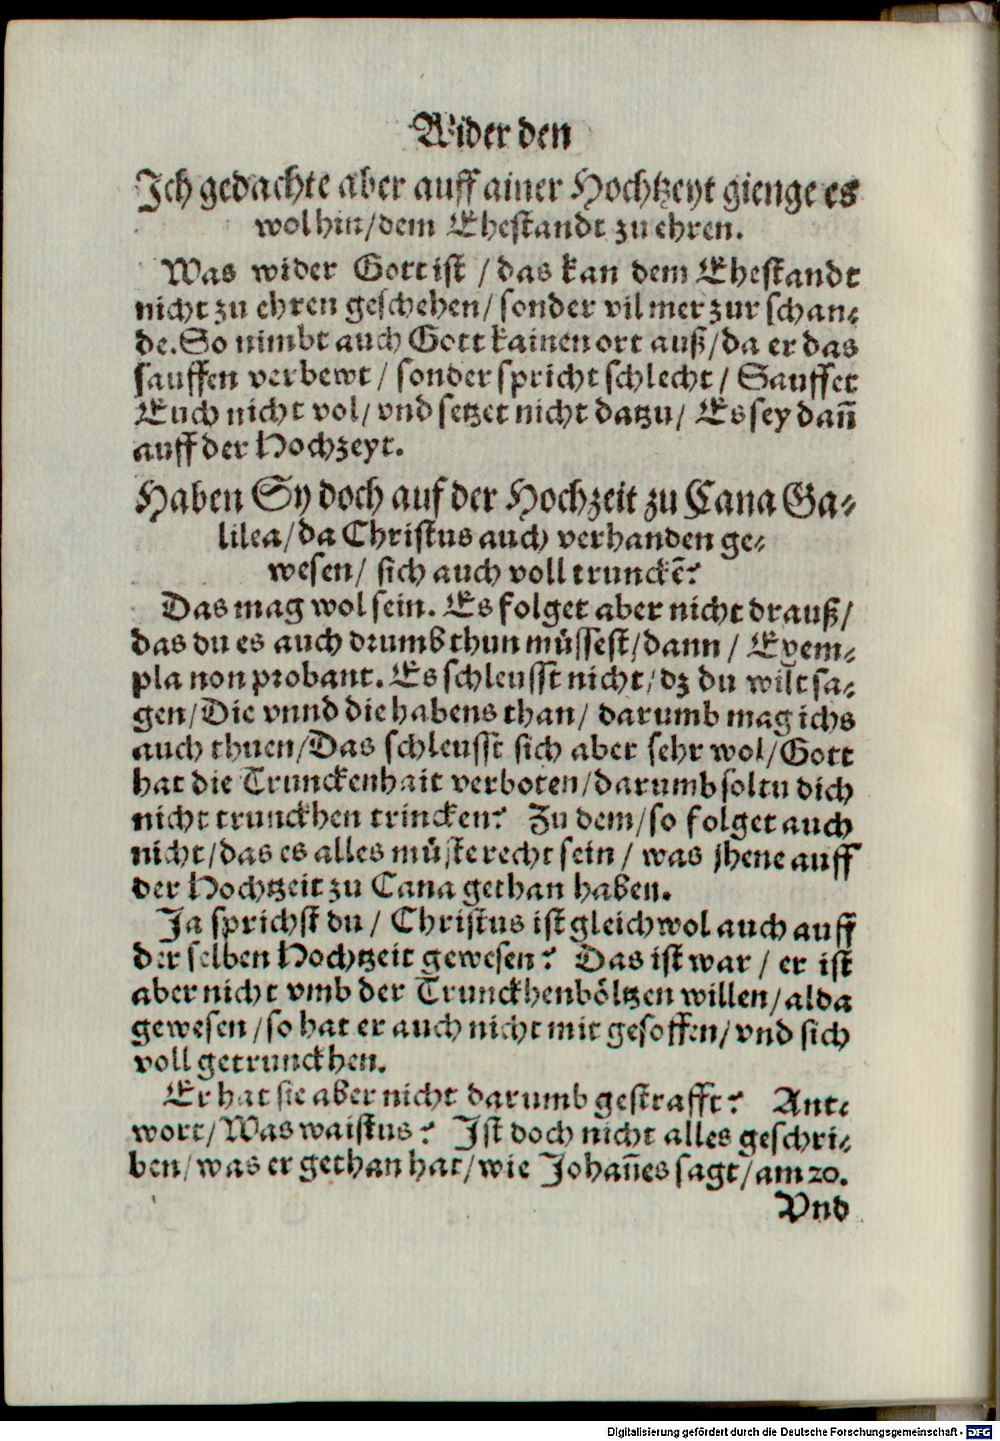 Wider den
Ich gedachte aber auff ainer Hochtzeyt gienge es
wol hin/dem Ehestandt zu ehren.
Was wider Gott ist /das kan dem Ehestandt
nicht zu ehren geschehen/ sonder vil mer zur schan⸗
de. So nimbt auch Gott kainen ort auß/da er das
sauffen verbewt / sonder spricht schlecht / Sauffet
Euch nicht vol/ vnd setzet nicht datzu/ Es sey dañ
auff der Hochzeyt.
Haben Sy doch auf der Hochzeit zu Cana Ga⸗
lilea/da Christus auch verhanden ge⸗
wesen/ sich auch voll trunckẽ?
Das mag wol sein. Es folget aber nicht drauß/
das du es auch drumb thun můssest/dann / Exem⸗
pla non probant. Es schleusst nicht/dz du wilt sa⸗
gen/Die vnnd die habens than/ darumb mag ichs
auch thuen/Das schleusst sich aber sehr wol/Gott
hat die Trunckenhait verboten/darumb soltu dich
nicht trunckhen trincken? Zu dem/so folget auch
nicht/das es alles můste recht sein / was jhene auff
der Hochtzeit zu Cana gethan haben.
Ja sprichst du / Christus ist gleichwol auch auff
der selben Hochtzeit gewesen? Das ist war / er ist
aber nicht vmb der Trunckhenbőltzen willen/alda
gewesen /so hat er auch nicht mit gesoffen/vnd sich
voll getrunckhen.
Er hat sie aber nicht darumb gestrafft? Ant⸗
wort/Was waistus? Ist doch nicht alles geschri⸗
ben/was er gethan hat/wie Johañes sagt/am 20.
Vnd
Digitalisierung gefördert durch die Deutsche Forschungsgemeinschaft - DFG